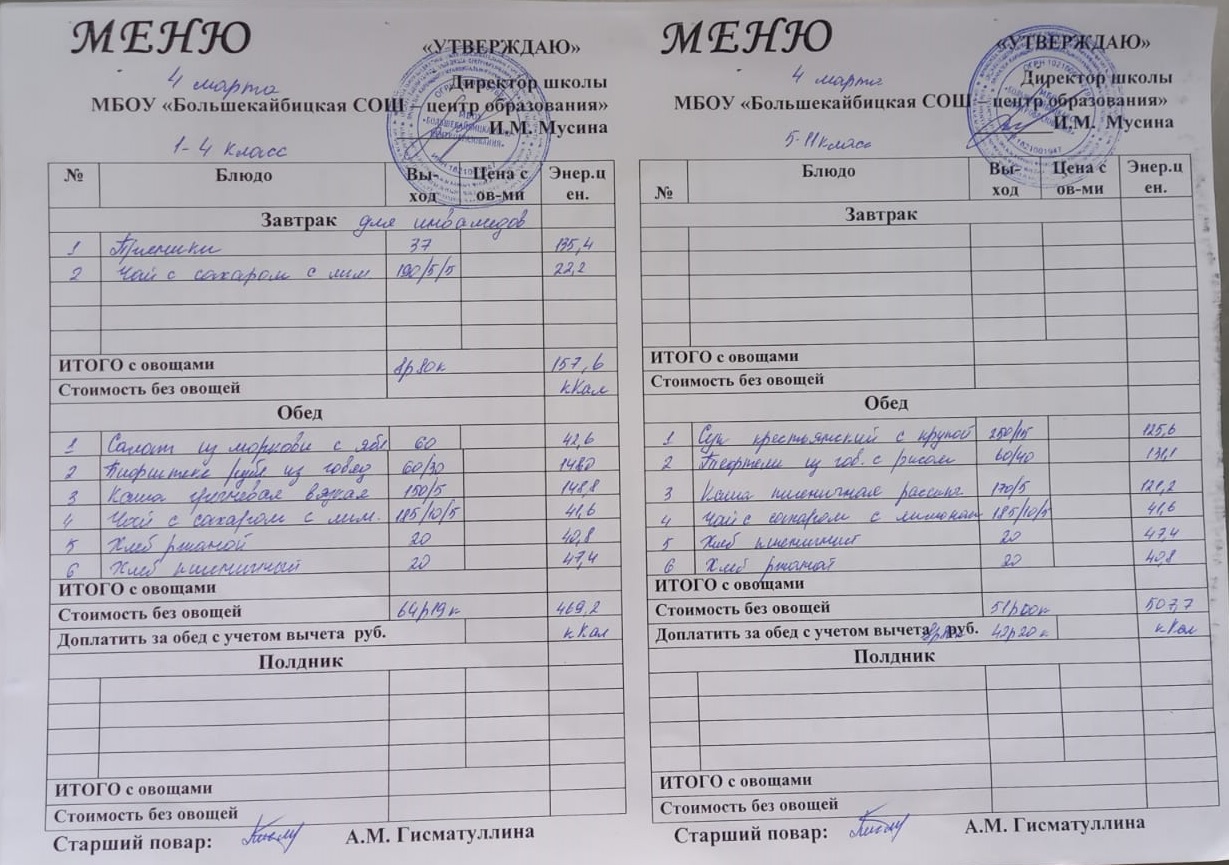 МЕНЮ
«УТВЕРЖДАЮ»
4 марта
Директор школы
МБОУ «Большекайбицкая СОШ – центр образования»
И.М. Мусина
1-4 класс
№ Блюдо Вы-ход Цена с ов-ми Энер.ц ен.
Завтрак для инвалидов
1 Пряники 37 135,4
2 Чай с сахаром с лим 190/5/5 22,2
ИТОГО с овощами 8р80к 157,6
Стоимость без овощей кКал
Обед
1 Салат из моркови с ябл 60 42,6
2 Бифштекс рубл из говяд 60/30 148,0
3 Каша гречневая вязкая 150/5 148,8
4 Чай с сахаром с лим. 185/10/5 41,6
5 Хлеб ржаной 20 40,8
6 Хлеб пшеничный 20 47,4
ИТОГО с овощами
Стоимость без овощей 64р19к 469,2
Доплатить за обед с учетом вычета руб. кКал
Полдник
ИТОГО с овощами
Стоимость без овощей
Старший повар: А.М. Гисматуллина
МЕНЮ
«УТВЕРЖДАЮ»
4 марта
Директор школы
МБОУ «Большекайбицкая СОШ – центр образования»
И.М. Мусина
5-11 класс
№ Блюдо Вы-ход Цена с ов-ми Энер.ц ен.
Завтрак
ИТОГО с овощами
Стоимость без овощей
Обед
1 Суп крестьянский с крупой 250/15 125,6
2 Тефтели из гов. с рисом 60/40 131,1
3 Каша пшеничная рассып. 170/5 121,2
4 Чай с сахаром с лимоном 185/10/5 41,6
5 Хлеб пшенич 20 47,4
6 Хлеб ржаной 20 40,8
ИТОГО с овощами
Стоимость без овощей 51р00к 507,7
Доплатить за обед с учетом вычета руб. 42р20к кКал
Полдник
ИТОГО с овощами
Стоимость без овощей
Старший повар: А.М. Гисматуллина